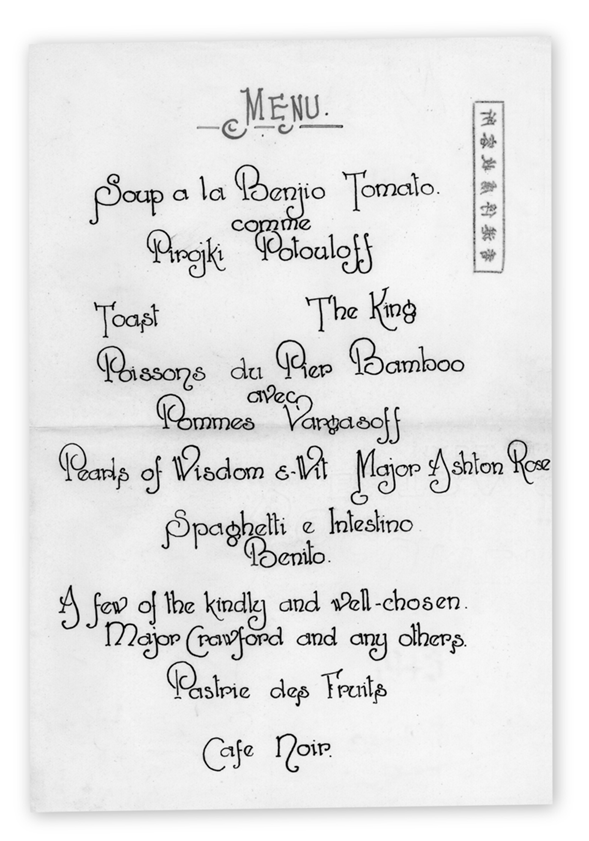 MENU.
Soup a la Benjio Tomato.
comme
Pirojki Potouloff
Toast The King
Poissons du Pier Bamboo
avec
Pommes Vargasoff
Pearls of Wisdom & Wit Major Ashton Rose
Spaghetti e Intestino
Benito.
A few of the kindly and well-chosen.
Major Crawford and any others.
Pastrie des Fruits
Cafe Noir.